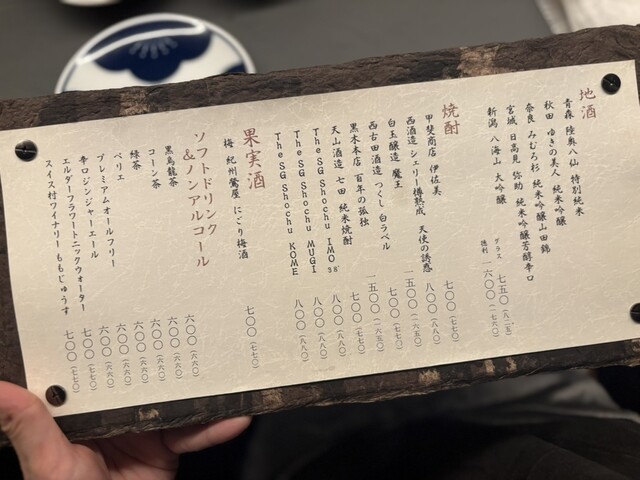 地酒
青森 陸奥八仙 特別純米
秋田 ゆきの美人 純米吟醸
奈良 みむろ杉 純米吟醸山田錦
宮城 日高見 弥助 純米吟醸芳醇辛口
新潟 八海山 大吟醸
グラス 七五〇(八二五)
徳利 一六〇〇(一七六〇)
焼酎
甲斐商店 伊佐美 七〇〇(七七〇)
西酒造 シェリー樽熟成 天使の誘惑 八〇〇(八八〇)
白玉醸造 魔王 一五〇〇(一六五〇)
西吉田酒造 つくし 白ラベル 七〇〇(七七〇)
黒木本店 百年の孤独 一五〇〇(一六五〇)
天山酒造 七田 純米焼酎 七〇〇(七七〇)
The SG Shochu IMO 38° 八〇〇(八八〇)
The SG Shochu MUGI 八〇〇(八八〇)
The SG Shochu KOME 八〇〇(八八〇)
果実酒
梅 紀州鶯屋 にごり梅酒 七〇〇(七七〇)
ソフトドリンク
&ノンアルコール
黒烏龍茶 六〇〇(六六〇)
コーン茶 六〇〇(六六〇)
緑茶 六〇〇(六六〇)
ペリエ 六〇〇(六六〇)
プレミアムオールフリー 六〇〇(六六〇)
辛口ジンジャーエール 六〇〇(六六〇)
エルダーフラワートニックウォーター 七〇〇(七七〇)
スイス村ワイナリーももじゅうす 七〇〇(七七〇)